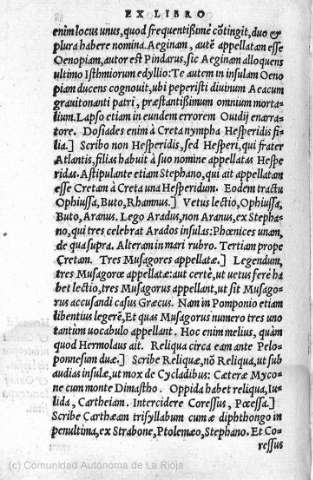 EX LIBRO
enim locus unus, quod frequentißimè cõtingit, duo &
plura habere nomina. Aeginam, autẽ appellatam esse
Oenopiam, autor est Pindarus, sic Aeginam alloquens
ultimo Isthmiorum edyllio: Te autem in insulam Oeno
piam ducens cognouit, ubi peperisti diuinum Aeacum
grauitonanti patri, præstantißimum omnium morta-
lium. Lapso etiam in eundem errorem Ouidij enarra-
tore. Dosiades enim à Creta nympha Hesperidis fi-
lia.] Scribo non Hesperidis, sed Hesperi, qui frater
Atlantis, filias habuit à suo nomine appellatas Hespe
ridas. Astipulante etiam Stephano, qui ait appellatam
esse Cretam à Creta una Hesperidum. Eodem tractu
Ophiussa, Buto, Rhamnus.] Vetus lectio, Ophiussa,
Buto, Aranus. Lego Aradus, non Aranus, ex Stepha-
no, qui tres celebrat Arados insulas: Phœnices unam,
de qua supra. Alteram in mari rubro. Tertiam prope
Cretam. Tres Musagores appellatæ.] Legendum,
tres Musagoræ appellatæ: aut certè, ut uetus ferè ha
bet lectio, tres Musagorus appellant, ut sit Musago-
rus accusandi casus Græcus. Nam in Pomponio etiam
libentius legerẽ, Et quas Musagorus numero tres uno
tantùm uocabulo appellant. Hoc enim melius, quàm
quod Hermolaus ait. Reliqua circa eam ante Pelo-
ponnesum duæ.] Scribe Reliquæ, nõ Reliqua, ut sub
audias insulæ, ut mox de Cycladibus: Cæteræ Myco-
ne cum monte Dimastho. Oppida habet reliqua, Iu-
lida, Cartheiam. Intercidere Coressus, Pœessa.]
Scribe Carthæam trisyllabum cum æ diphthongo in
penultima, ex Strabone, Ptolemæo, Stephano. Et Co-
ressus
(c) Comunidad Autónoma de La Rioja